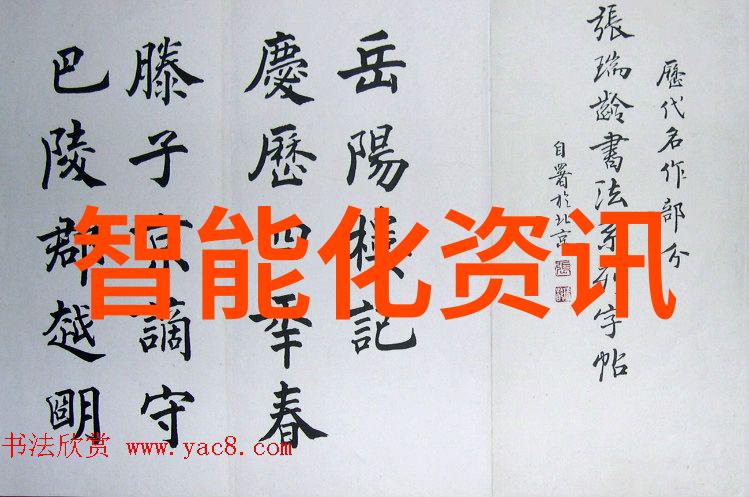 歷代名作部分
張瑞齡書法系列字帖
自署於北京
岳陽樓記
慶歷四年春
滕子京謫守
巴陵郡越明
智能化资讯
书法欣赏 www.yac8.com